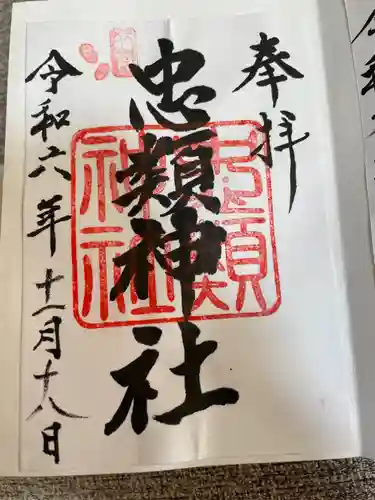 奉拝
忠類神社
忠類
神社
令和六年十一月十八日